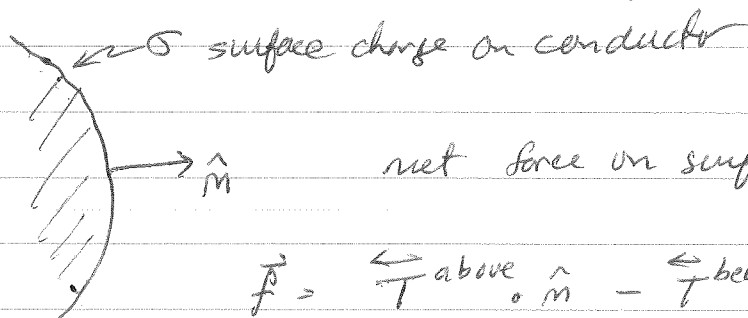 σ surface charge on conductor
n̂ net force on surf
f⃗ = T⃡ above · n̂ − T⃡ be